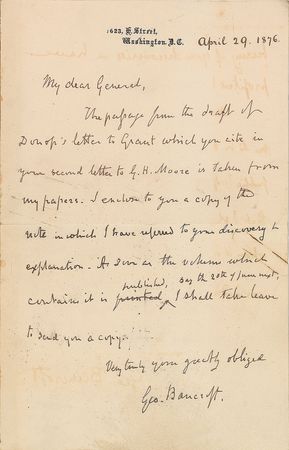 1623, H. Street,
Washington, D.C. April 29. 1876.
My dear General,
The passage from the draft of
Donop's letter to Grant which you cite in
your second letter to G. H. Moore is taken from
my papers. I enclose to you a copy of the
note in which I have referred to your discovery &
explanation. As soon as the volume which
published, say the 20th of June next,
contains it is printed, I shall take leave
to send you a copy.
Very truly yours greatly obliged
Geo. Bancroft.